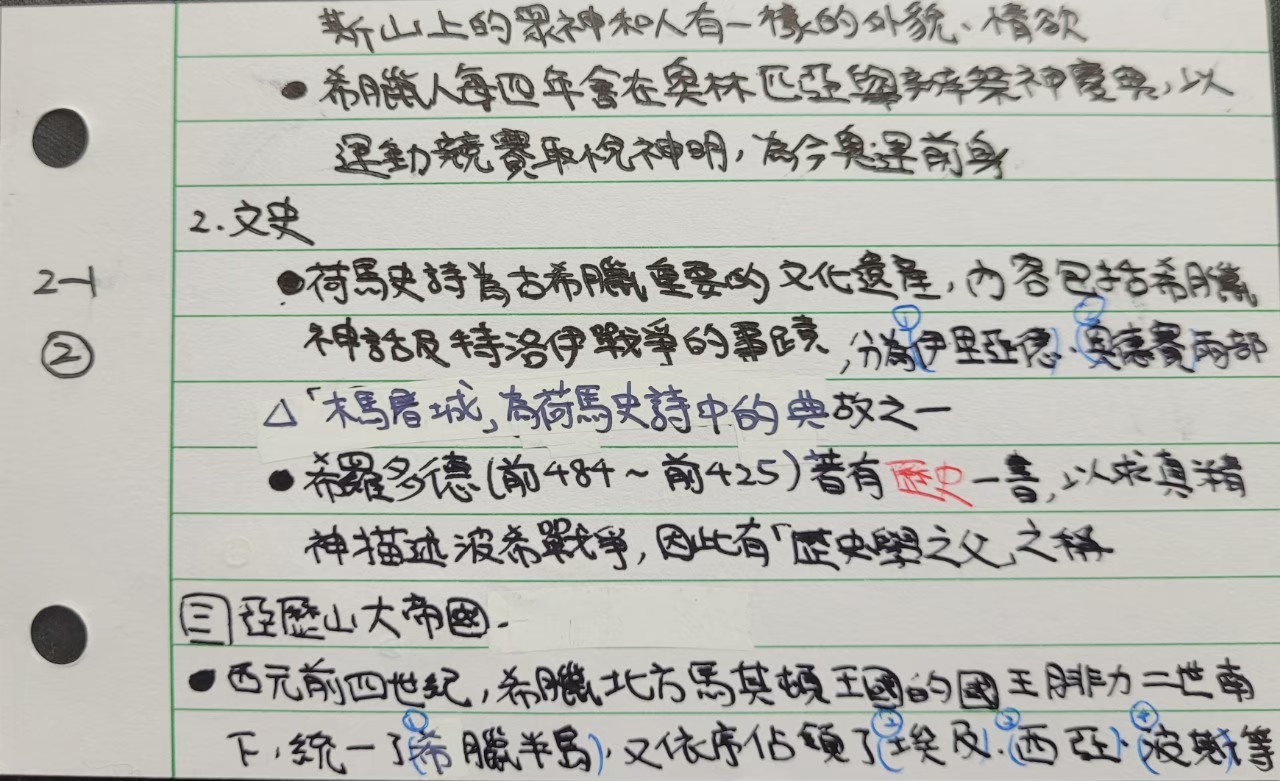 斯山上的眾神和人有一樣的外貌、情欲
●希臘人每四年會在奧林匹亞舉辦祭神慶典，以
運動競賽取悅神明，為今奧運前身
2.文史
●荷馬史詩為古希臘重要的文化遺產，內容包括希臘
2-1
神話及特洛伊戰爭的事蹟，分為①(伊里亞德)、②(奧德賽)兩部
②
△「木馬屠城」為荷馬史詩中的典故之一
●希羅多德(前484~前425)著有歷史一書，以求真精
神描述波希戰爭，因此有「歷史學之父」之稱
三 亞歷山大帝國.
●西元前四世紀，希臘北方馬其頓王國的國王腓力二世南
下，統一了①(希臘半島)，又依序佔領了②(埃及)、③(西亞)、④(波斯)等